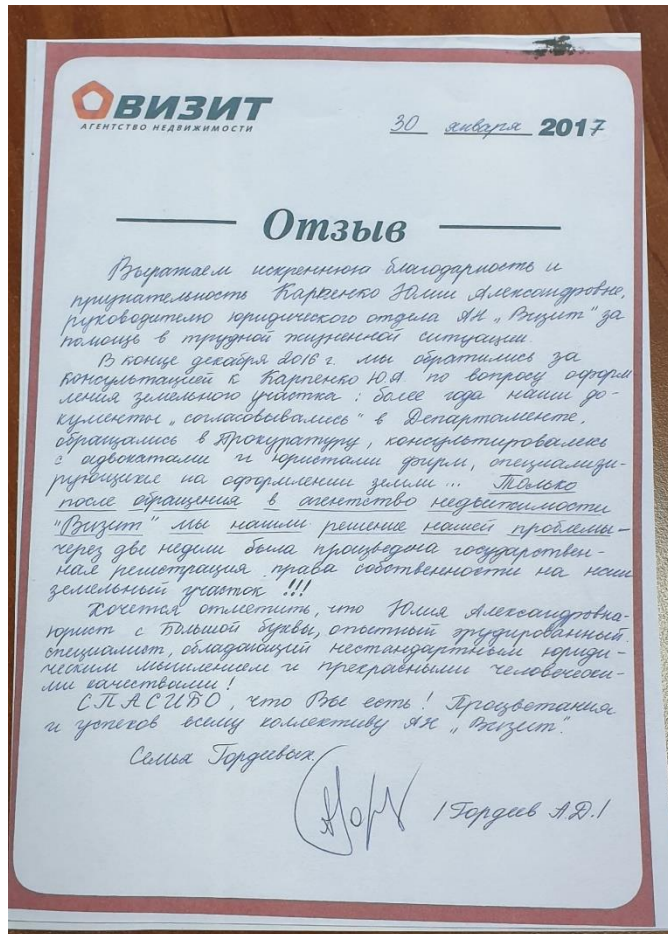 ВИЗИТ
АГЕНТСТВО НЕДВИЖИМОСТИ
30 января 2017
Отзыв
Выражаем искреннюю благодарность и
признательность Карпенко Юлии Александровне,
руководителю юридического отдела АН „Визит" за
помощь в трудной жизненной ситуации.
В конце декабря 2016 г. мы обратились за
консультацией к Карпенко ЮА по вопросу оформ
ления земельного участка: более года наши до-
кументы „согласовывались" в Департаменте,
обращались в Прокуратуру, консультировались
с адвокатами и юристами фирм, специализи-
рующихся на оформлении земли... Только
после обращения в агентство недвижимости
"Визит" мы нашли решение нашей проблемы –
через две недели была произведена государствен-
ная регистрация права собственности на наш
земельный участок !!!
Хочется отметить, что Юлия Александровна-
юрист с Большой буквы, опытный эрудированный
специалист, обладающий нестандартным юриди-
ческим мышлением и прекрасными человечески-
ми качествами!
СПАСИБО, что Вы есть! Процветания
и успехов всему коллективу АН „Визит".
Семья Гордеевых.
/Гордеев А.Д./